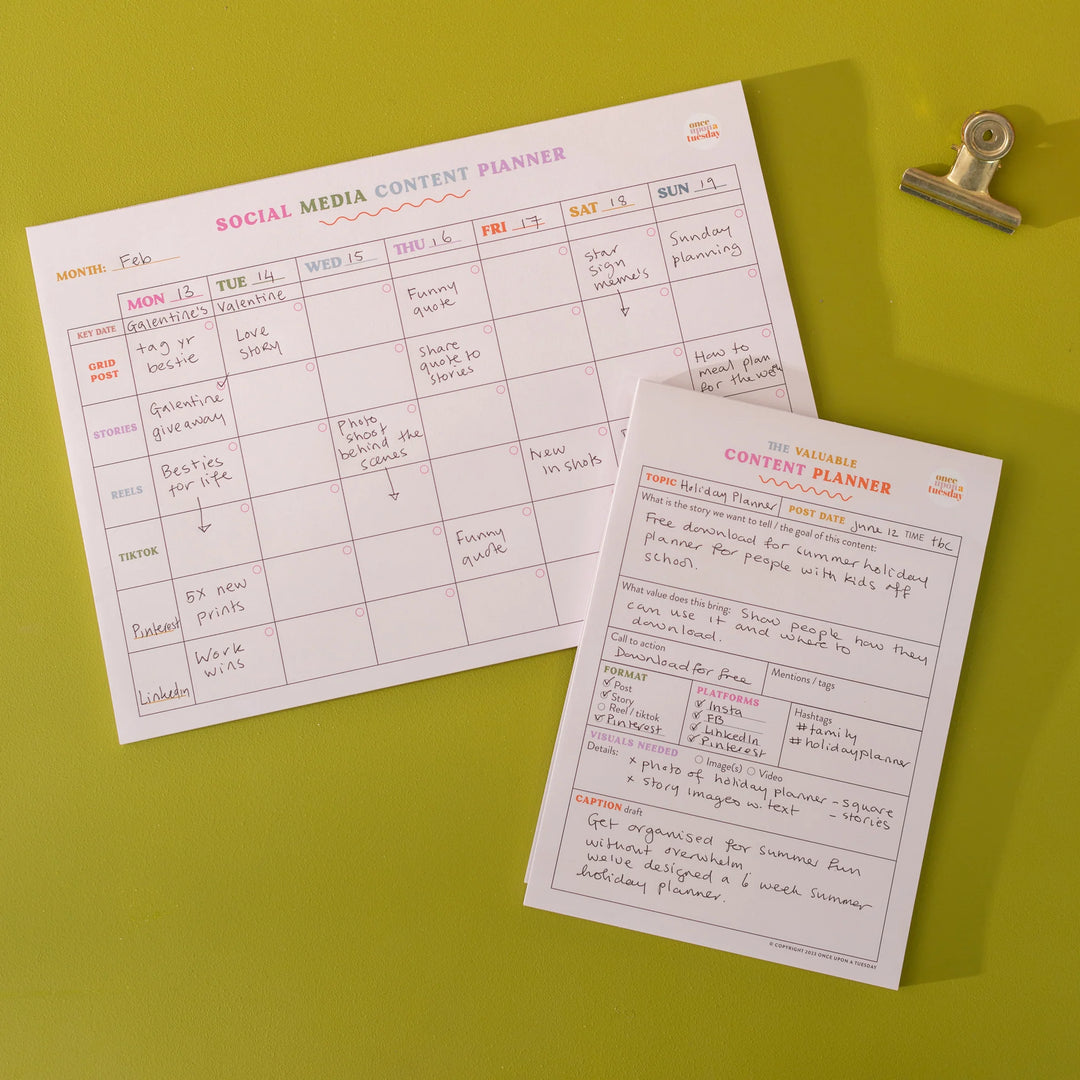 once
upon a
tuesday
SOCIAL MEDIA CONTENT PLANNER
MONTH: Feb
MON 13 TUE 14 WED 15 THU 16 FRI 17 SAT 18 SUN 19
KEY DATE Galentine's Valentine
GRID
POST
tag yr
bestie
Love
story
Funny
quote
Star
sign
meme's
Sunday
planning
STORIES
Galentine
giveaway
Share
quote to
stories
How to
meal plan
for the
REELS
Besties
for life
Photo
shoot
behind the
scenes
New
in shots
TIKTOK
Funny
quote
Pinterest
5x new
prints
Linkedin
Work
wins
THE VALUABLE
CONTENT PLANNER
once
upon a
tuesday
TOPIC Holiday Planner POST DATE June 12 TIME tbc
What is the story we want to tell / the goal of this content:
Free download for summer holiday
planner for people with kids off
school.
What value does this bring: Show people how they
can use it and where to
download.
Call to action
Download for free
Mentions / tags
FORMAT
Post
Story
Reel / tiktok
Pinterest
PLATFORMS
Insta
FB
LinkedIn
Pinterest
Hashtags
#family
#holidayplanner
VISUALS NEEDED Image(s) Video
Details:
x photo of holiday planner - square
x story images w. text - stories
CAPTION draft
Get organised for summer fun
without overwhelm
we've designed a 6 week summer
holiday planner.
© COPYRIGHT 2023 ONCE UPON A TUESDAY